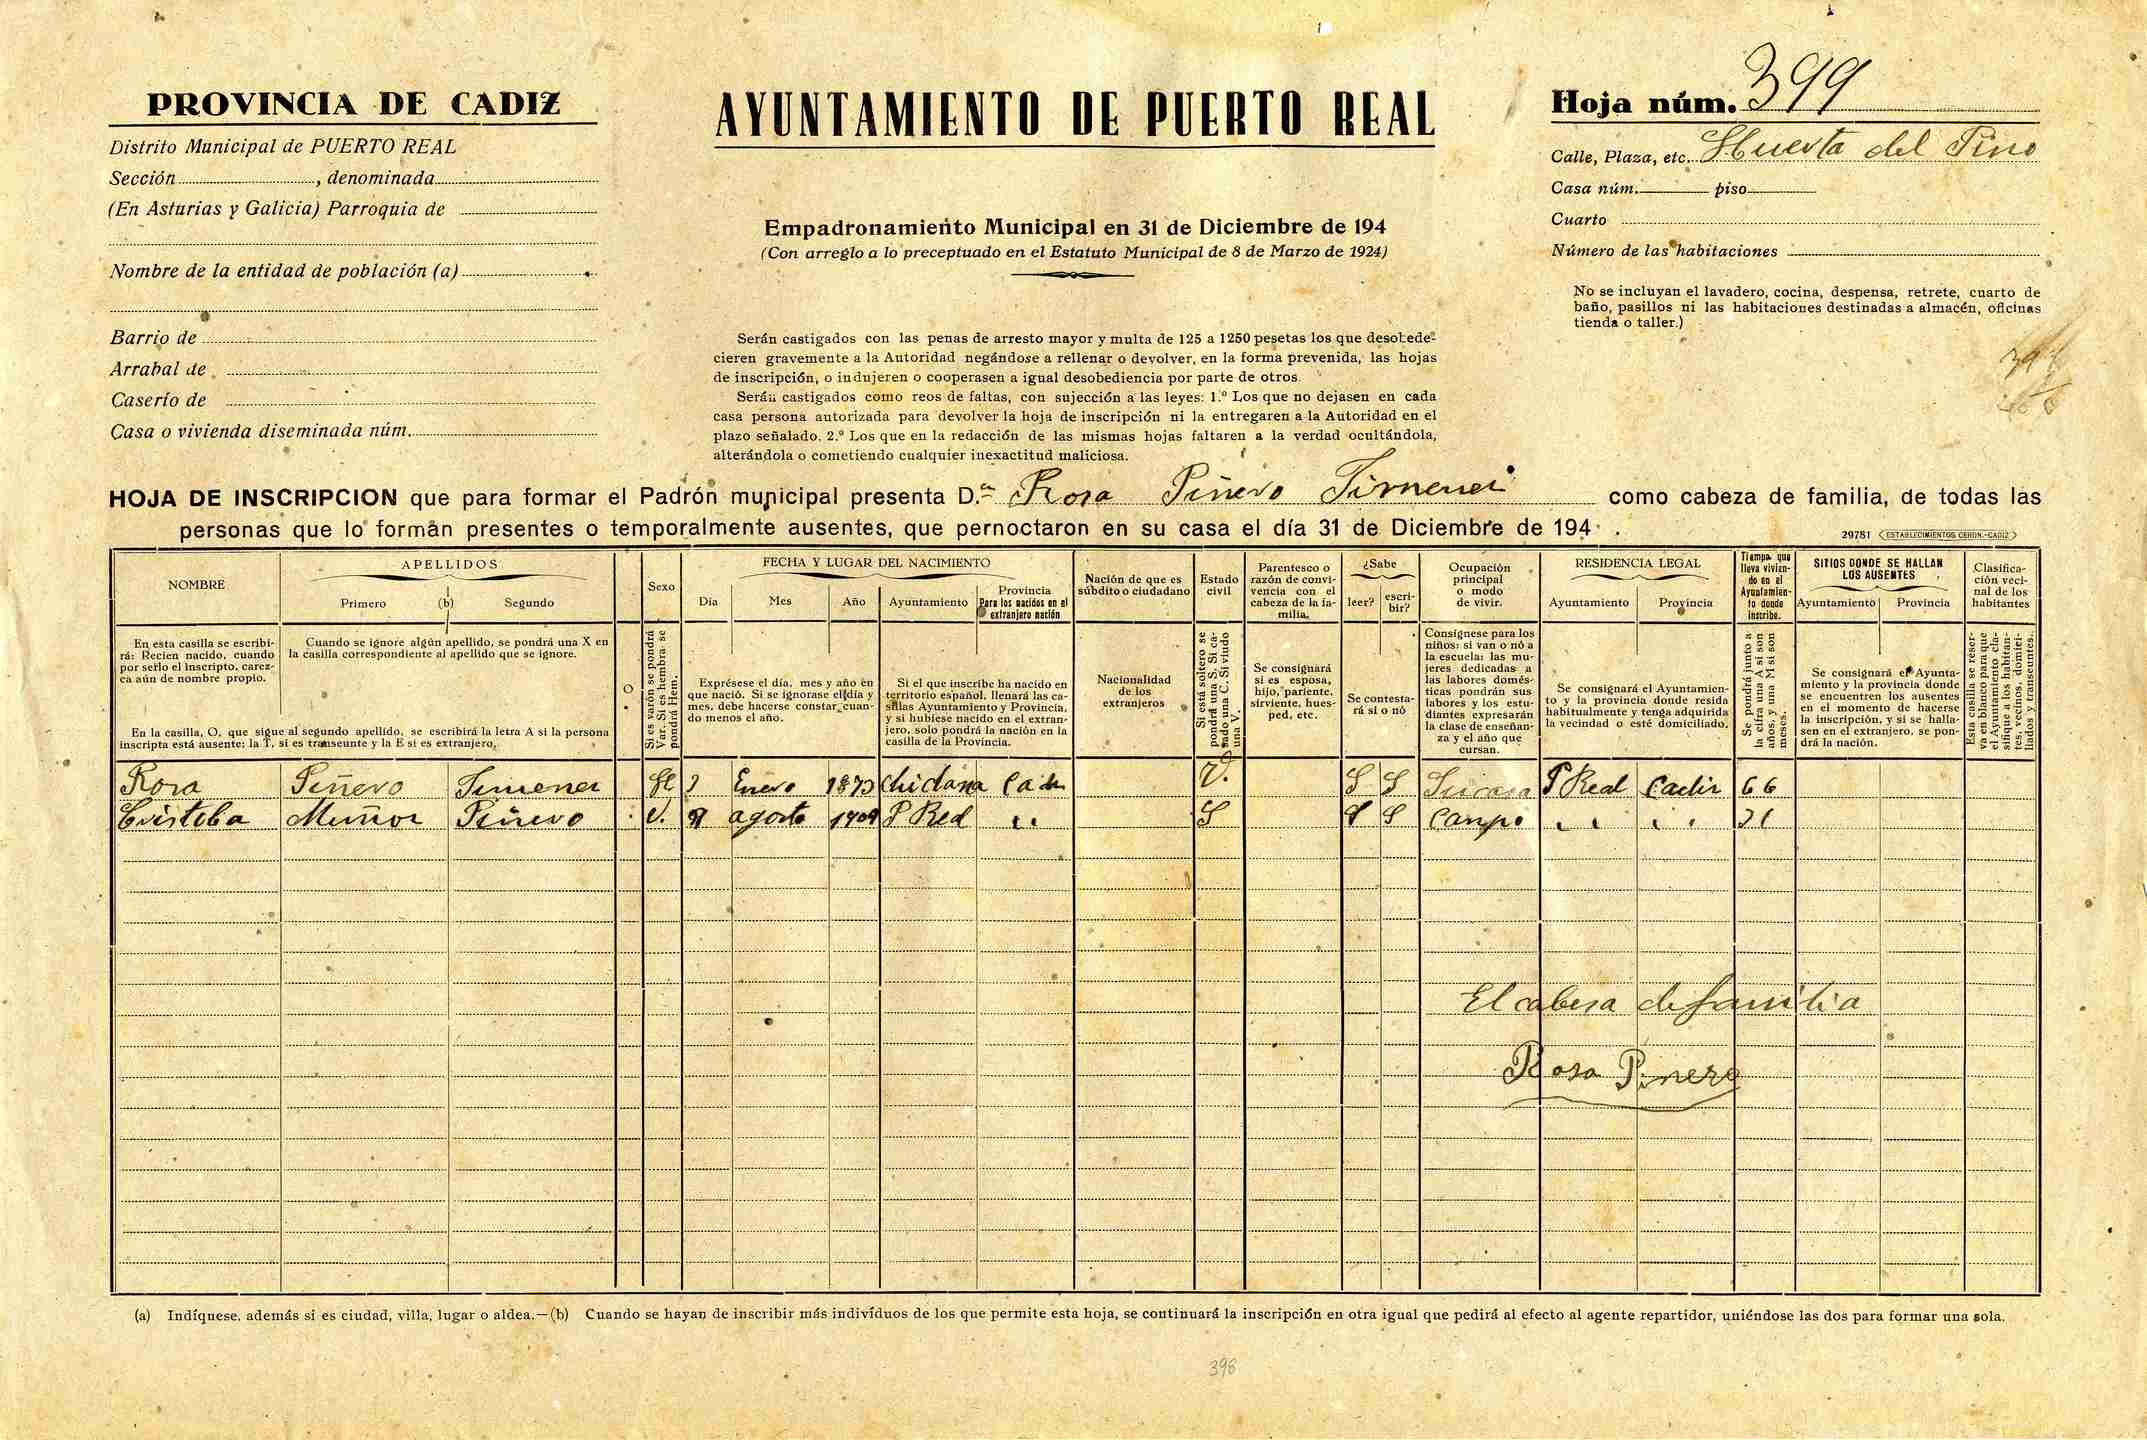 PROVINCIA DE CADIZ
Distrito Municipal de PUERTO REAL
Sección , denominada
(En Asturias y Galicia) Parroquia de
Nombre de la entidad de población (a)
Barrio de
Arrabal de
Caserío de
Casa o vivienda diseminada núm.
AYUNTAMIENTO DE PUERTO REAL
Empadronamiento Municipal en 31 de Diciembre de 194
(Con arreglo a lo preceptuado en el Estatuto Municipal de 8 de Marzo de 1924)
Serán castigados con las penas de arresto mayor y multa de 125 a 1250 pesetas los que desobede-
cieren gravemente a la Autoridad negándose a rellenar o devolver, en la forma prevenida, las hojas
de inscripción, o indujeren o cooperasen a igual desobediencia por parte de otros.
Serán castigados como reos de faltas, con sujección a las leyes: 1.º Los que no dejasen en cada
casa persona autorizada para devolver la hoja de inscripción ni la entregaren a la Autoridad en el
plazo señalado. 2.º Los que en la redacción de las mismas hojas faltaren a la verdad ocultándola,
alterándola o cometiendo cualquier inexactitud maliciosa.
Hoja núm. 399
Calle, Plaza, etc. Huerta del Pino
Casa núm. piso
Cuarto
Número de las habitaciones
No se incluyan el lavadero, cocina, despensa, retrete, cuarto de
baño, pasillos ni las habitaciones destinadas a almacén, oficinas
tienda o taller.)
HOJA DE INSCRIPCION que para formar el Padrón municipal presenta D.ª Rosa Piñero Jimenez como cabeza de familia, de todas las
personas que lo forman presentes o temporalmente ausentes, que pernoctaron en su casa el día 31 de Diciembre de 194 .
29781 ESTABLECIMIENTOS CERON.-CADIZ
NOMBRE
APELLIDOS
Primero (b) Segundo
O
Sexo
FECHA Y LUGAR DEL NACIMIENTO
Día Mes Año Ayuntamiento
Provincia
Para los nacidos en el
extranjero nación
Nación de que es
súbdito o ciudadano
Estado
civil
Parentesco o
razón de convi-
vencia con el
cabeza de la fa-
milia.
¿Sabe
leer? escri-
bir?
Ocupación
principal
o modo
de vivir.
RESIDENCIA LEGAL
Ayuntamiento Provincia
Tiempo que
lleva vivien-
do en el
Ayuntamien-
to donde
inscribe.
SITIOS DONDE SE HALLAN
LOS AUSENTES
Ayuntamiento Provincia
Clasifica-
ción veci-
nal de los
habitantes
En esta casilla se escribi-
rá: Recien nacido, cuando
por serlo el inscripto, carez-
ca aún de nombre propio.
Cuando se ignore algún apellido, se pondrá una X en
la casilla correspondiente al apellido que se ignore.
En la casilla, O, que sigue al segundo apellido, se escribirá la letra A si la persona
inscripta está ausente; la T, si es transeunte y la E si es extranjero,
Si es varón se pondrá
Var. Si es hembra se
pondrá Hem.
Exprésese el día, mes y año en
que nació. Si se ignorase el día y
mes, debe hacerse constar cuan-
do menos el año.
Si el que inscribe ha nacido en
territorio español, llenará las ca-
sillas Ayuntamiento y Provincia,
y si hubiese nacido en el extran-
jero, solo pondrá la nación en la
casilla de la Provincia.
Nacionalidad
de los
extranjeros
Si está soltero se
pondrá una S. Si ca-
sado una C. Si viudo
una V.
Se consignará
si es esposa,
hijo, pariente,
sirviente, hues-
ped, etc.
Se contesta-
rá si o nó
Consígnese para los
niños: si van o nó a
la escuela: las mu-
jeres dedicadas a
las labores domés-
ticas pondrán sus
labores y los estu-
diantes expresarán
la clase de enseñan-
za y el año que
cursan.
Se consignará el Ayuntamien-
to y la provincia donde resida
habitualmente y tenga adquirida
la vecindad o esté domiciliado.
Se pondrá junto a
la cifra una A si son
años, y una M si son
meses.
Se consignará el Ayunta-
miento y la provincia donde
se encuentren los ausentes
en el momento de hacerse
la inscripción, y si se halla-
sen en el extranjero, se pon-
drá la nación.
Esta casilla se reser-
va en blanco para que
el Ayuntamiento cla-
sifique a los habitan-
tes, vecinos, domici-
liados y transeuntes.
Rosa Piñero Jimenez H Enero 1873 Chiclana Cadiz V. S S Su casa P Real Cadiz 66
Cristoba Muñoz Piñero V. agosto 1909 P Real " S S S Campo " " 31
El cabesa de familia
Rosa Pinero
(a) Indíquese, además si es ciudad, villa, lugar o aldea.—(b) Cuando se hayan de inscribir más individuos de los que permite esta hoja, se continuará la inscripción en otra igual que pedirá al efecto al agente repartidor, uniéndose las dos para formar una sola.
398